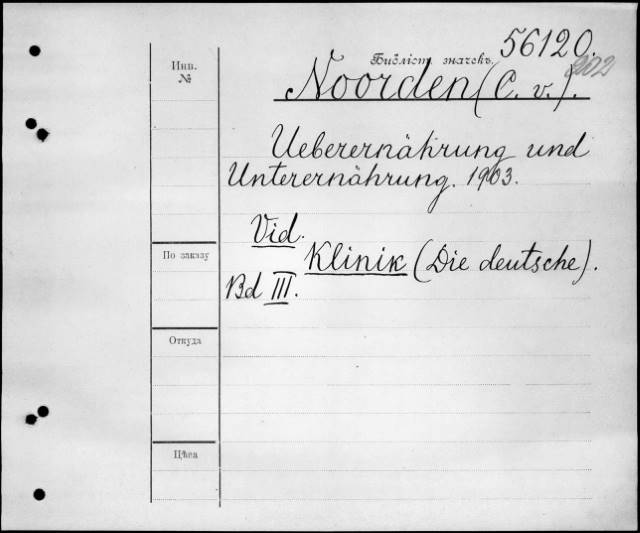 56120.
Инв.
№
Библіот. значекъ.
202
Noorden (C. v.).
Ueberernährung und
Unterernährung. 1903.
Vid.
По заказу
Klinik (Die deutsche).
Bd III.
Откуда
Цѣна